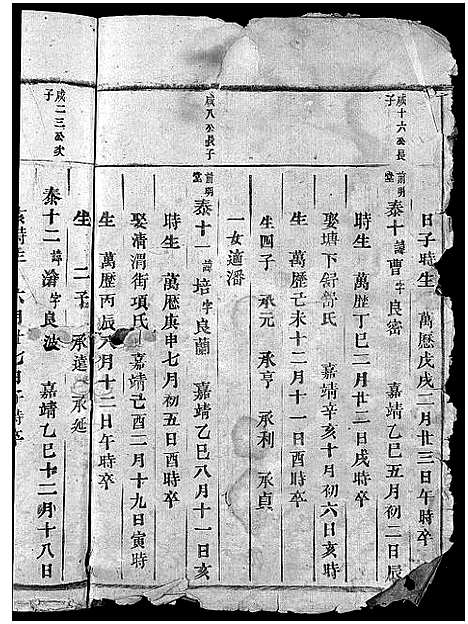 日子時生 萬歷戊戌二月廿三日午時卒
咸十六公長子
前明堂
泰十諱曹字良密 嘉靖乙巳五月初二日辰
時生 萬歷丁巳三月廿二日戌時卒
娶塘下舒氏 嘉靖辛亥十月初六日亥時
生 萬歷己未十二月十一日酉時卒
生四子 承元 承亨 承利 承貞
一女適潘
咸八公長子
前明堂
泰十一諱培字良蘭 嘉靖乙巳八月十一日亥
時生 萬歷庚申七月初五日酉時卒
娶清渭街項氏 嘉靖己酉二月十九日寅時
生 萬歷丙辰八月十二日午時卒
生 二子 承遠 承延
咸二三公次子
泰十二諱濬字良波 嘉靖乙巳十二月十八日
亥時生 六月廿七日午時卒